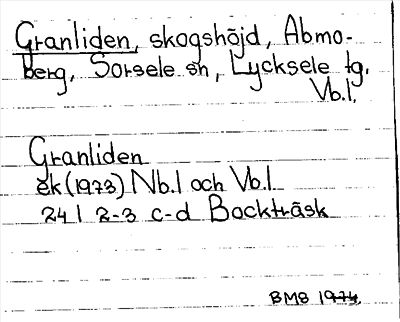 Granliden, skogshöjd, Abmo-
berg, Sorsele sn, Lycksele tg.
Vb.l.
Granliden
ek (1973) Nb.l och Vb.l
24 I 2-3 c-d Bockträsk
BMB 1974.